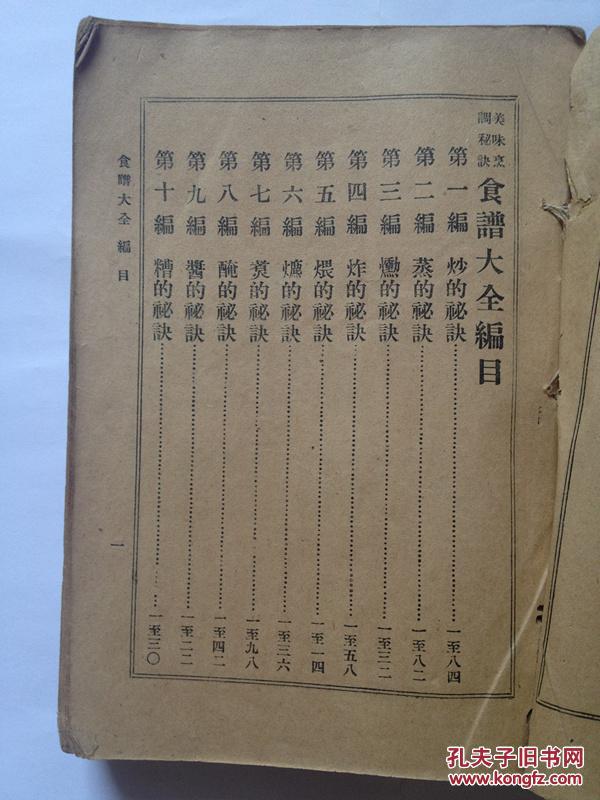 美味烹
調秘訣
食譜大全編目
第一編　炒的祕訣 一至八四
第二編　蒸的祕訣 一至八二
第三編　燻的祕訣 一至三二
第四編　炸的祕訣 一至五八
第五編　煨的祕訣 一至一四
第六編　的祕訣 一至三六
第七編　的祕訣 一至九八
第八編　醃的祕訣 一至四二
第九編　醬的祕訣 一至二二
第十編　糟的祕訣 一至三〇
食譜大全　編目
一
孔夫子旧书网
www.kongfz.com